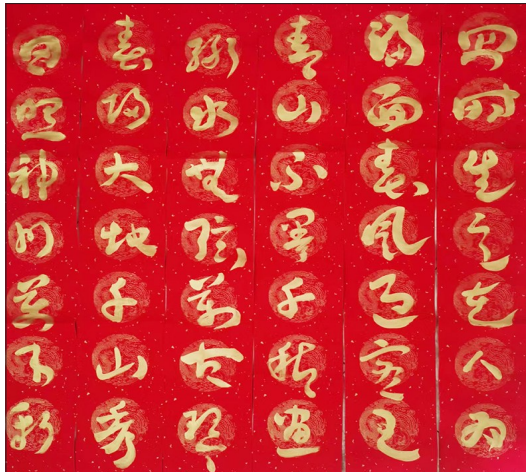 四时生意在人为
满面春风迎客至
青山不墨千秋画
绿水无弦万古琴
春归大地千山秀
日照神州万木新